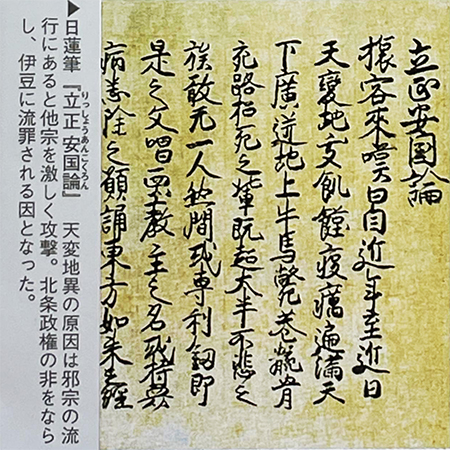 立正安国論
旅客來嘆曰自近年至近日
天變地夭飢饉疫癘遍滿天
下廣迸地上牛馬斃巷骸骨
充路招死之輩既超大半不悲之
族敢无一人然間或専利劔即
是之文唱西土教主之名或持衆
病悉除之願誦東方如来之經
▶日蓮筆『立正安国論』 天変地異の原因は邪宗の流
りっしょうあんこくろん
行にあると他宗を激しく攻撃。北条政権の非をなら
し、伊豆に流罪される因となった。